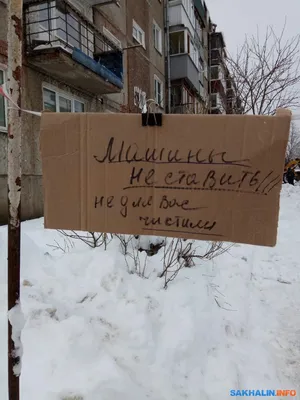 Машины
не ставить!!!
не для вас
чистили
SAKHALIN.INFO